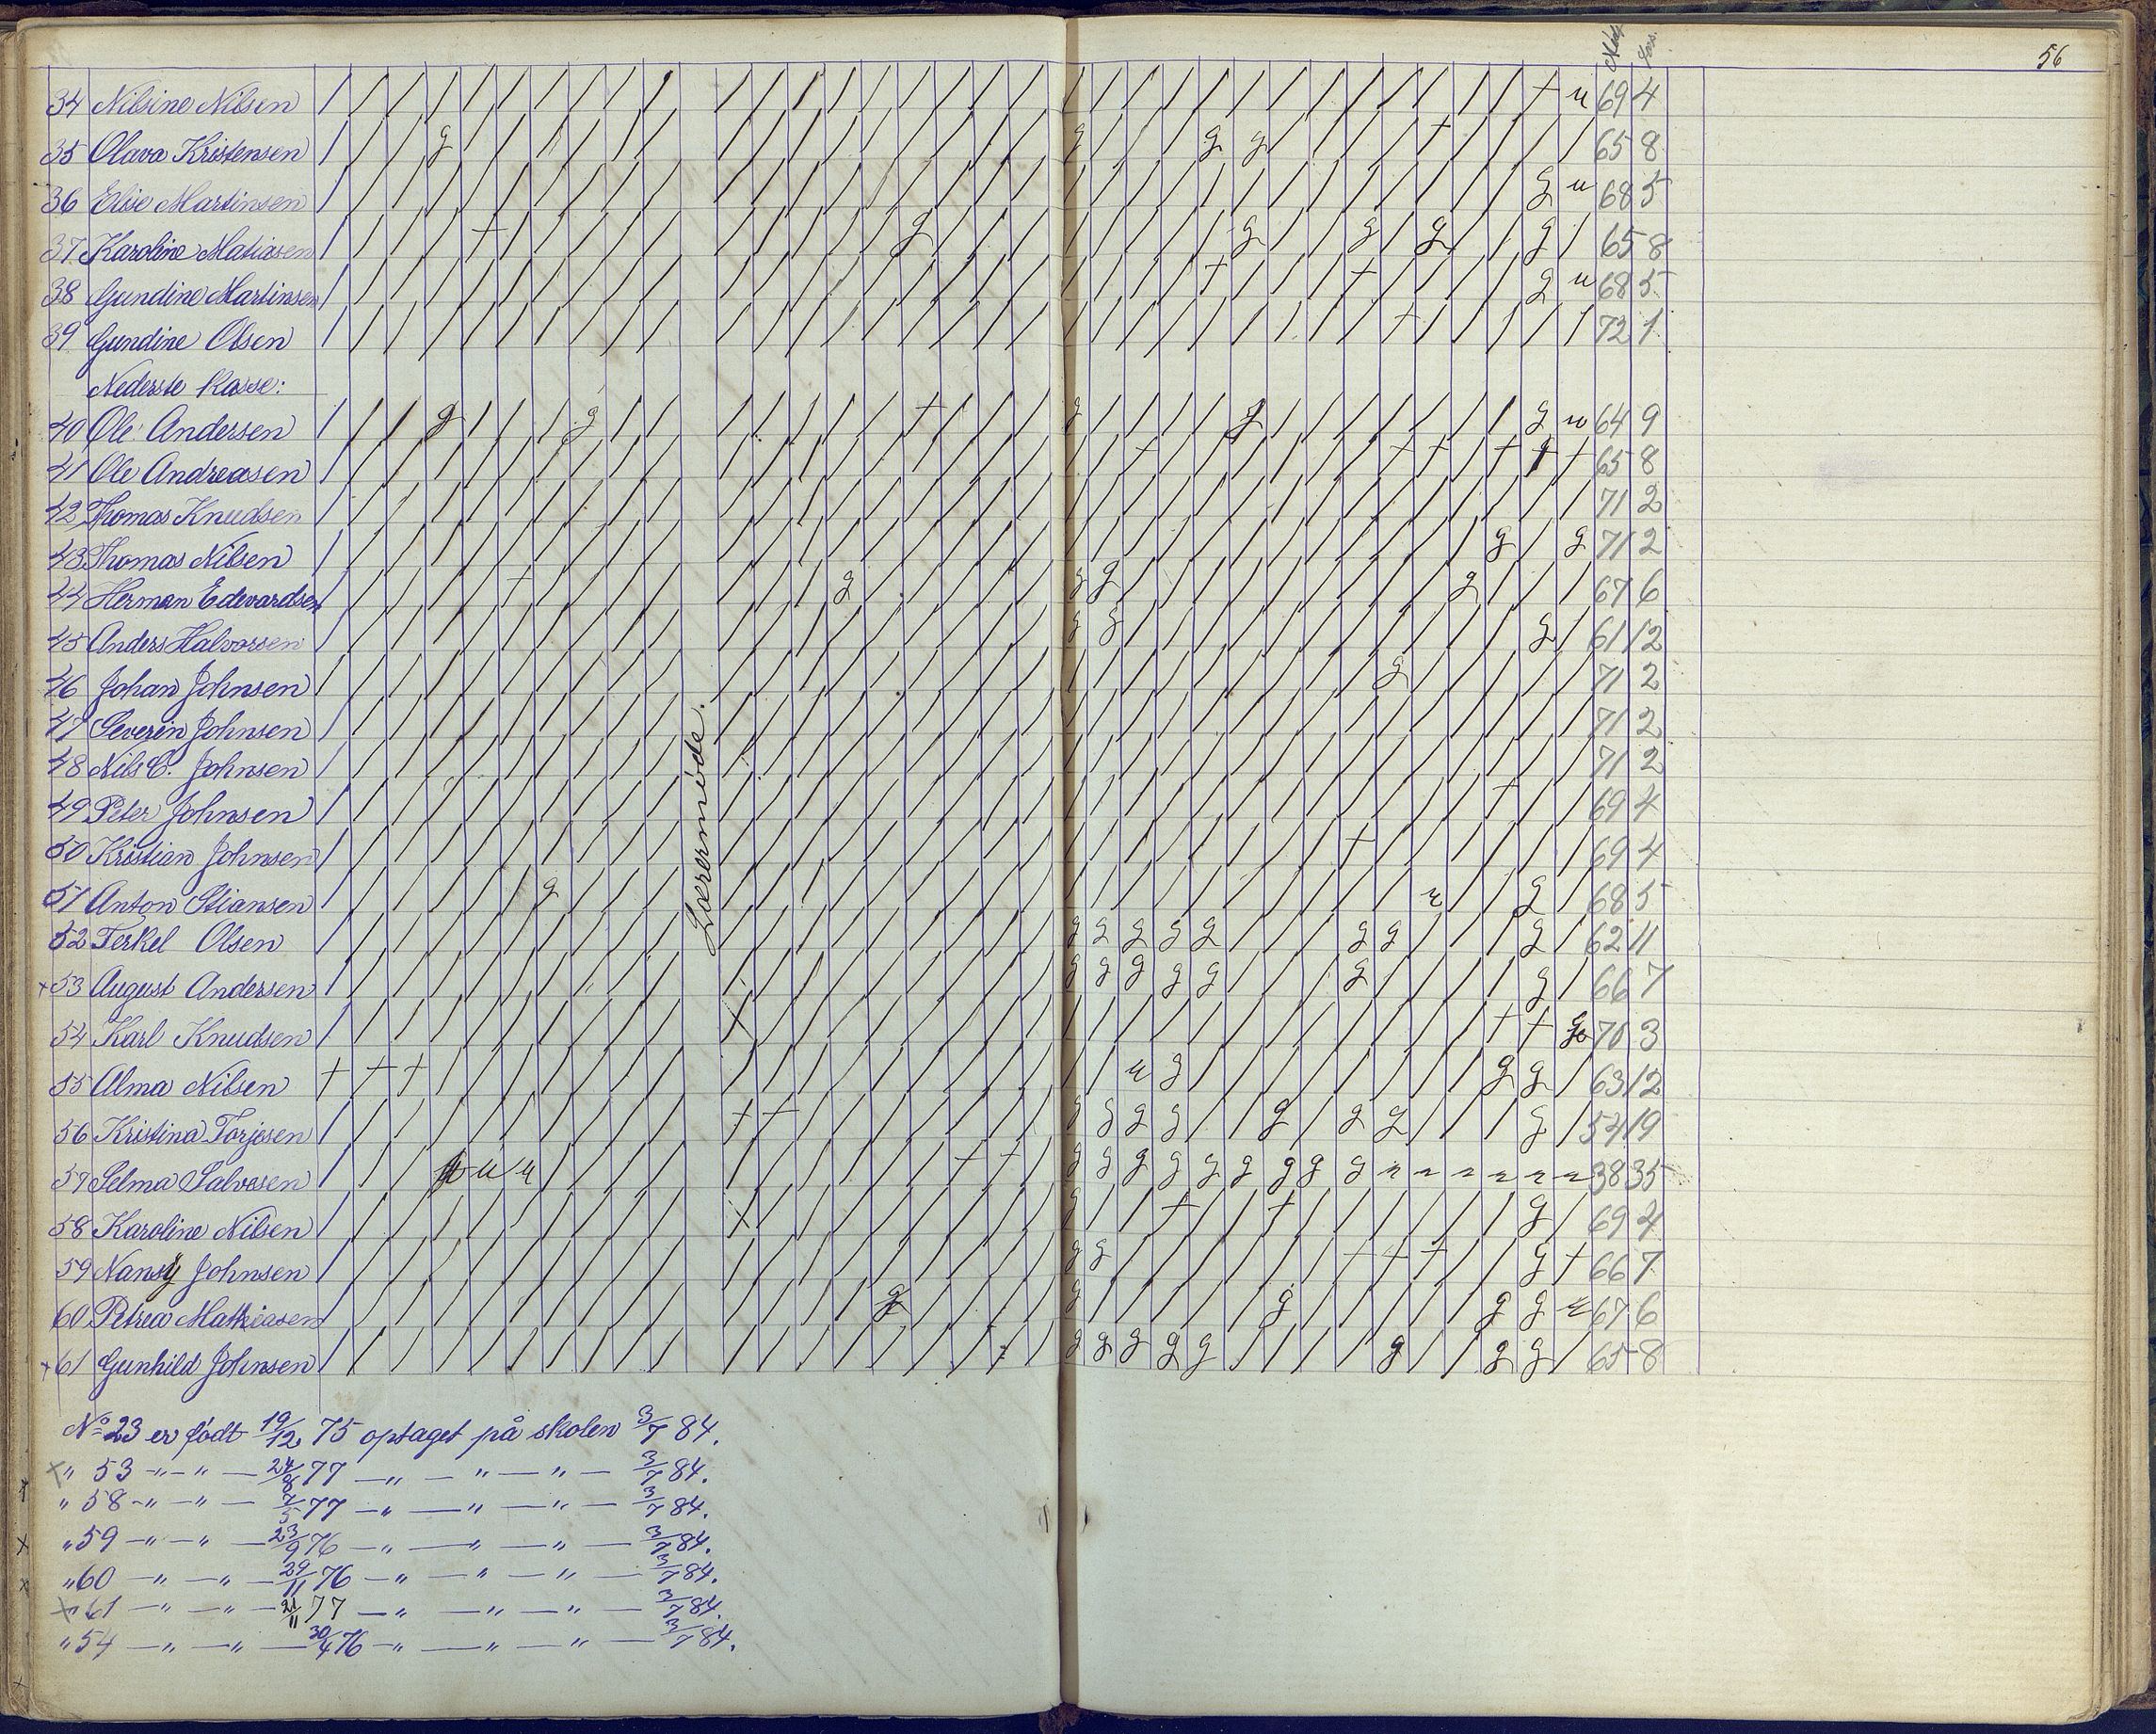 56
34 Nilsine Nilsen / / / / / / / / / / / / / / / / / / / / / / / / / / / / / / / / + u 69 4
35 Olava Kristensen g g g g + 65 8
36 Elise Martinsen g u 68 5
37 Karoline Matiasen + g g g g g 65 8
38 Gundine Martinsen + + g u 68 5
39 Gundine Olsen + 72 1
Nederste klasse:
40 Ole Andersen g g + g g g u 64 9
41 Ole Andreasen + + + + + + 65 8
42 Thomas Knudsen 71 2
43 Thomas Nilsen g g 71 2
44 Herman Edevardsen + g g g g 67 6
45 Anders Halvorsen g g g 61 12
46 Johan Johnsen g 71 2
47 Severin Johnsen 71 2
48 Nils C. Johnsen 71 2
49 Peter Johnsen + 69 4
50 Kristian Johnsen + 69 4
51 Anton Stiansen g u g 68 5
52 Terkel Olsen g g g g g g g g 62 11
+ 53 August Andersen g g g g g g g 66 7
54 Karl Knudsen + + 70 3
55 Alma Nilsen + + + u g g g 63 12
56 Kristina Torjesen + + g g g g g g g g 54 19
57 Selma Salvesen u u + + g g g g g g g g g u u u u u u 38 35
58 Karoline Nilsen g + + g 69 4
59 Nansy Johnsen g g + + + g + 66 7
60 Petrea Mathiasen g g g g g u 67 6
+ 61 Gunhild Johnsen g g g g g g g g 65 8
Lærermøde.
No 23 er født 19/12 75 optaget på skolen 3/7 84.
+ " 53 — " — " — 24/8 77 — " — " — " — 3/7 84.
" 58 — " — " — 7/5 77 — " — " — " — 3/7 84.
" 59 — " — " — 23/9 76 — " — " — " — 3/7 84.
" 60 — " — " — 29/11 76 — " — " — " — 3/7 84.
+ " 61 — " — " — 21/11 77 — " — " — " — 3/7 84.
" 54 — " — " — 30/4 76 — " — " — " — 3/7 84.